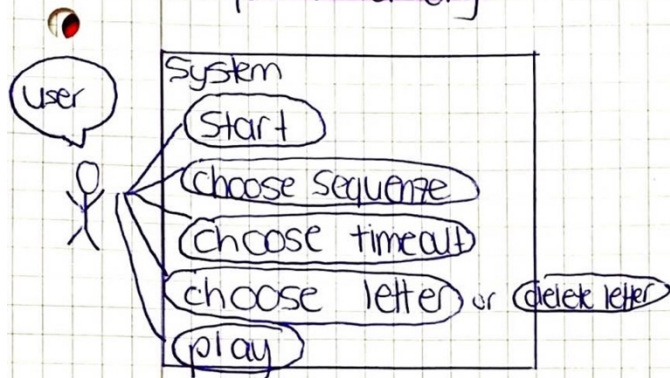 System
user
Start
choose sequenze
choose timeout
choose letter or delete letter
play